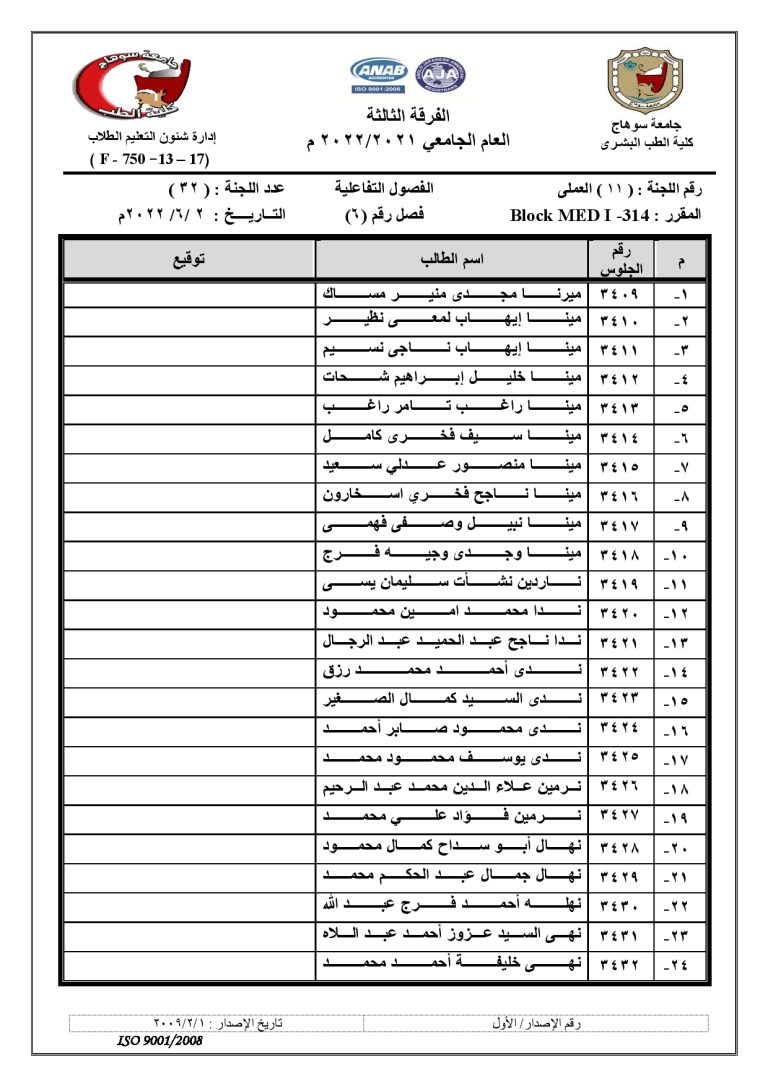 جامعة سوهاج
كلية الطب
ANAB
ACCREDITED
ISO 9001:2008
AJA
جامعة سوهاج
جامعة سوهاج
كلية الطب البشرى
الفرقة الثالثة
العام الجامعي ٢٠٢٢/٢٠٢١ م
إدارة شئون التعليم الطلاب
( F - 750 –13 – 17)
رقم اللجنة : ( ١١ ) العملى الفصول التفاعلية عدد اللجنة : ( ٣٢ )
المقرر : Block MED I -314 فصل رقم (٦) التـاريــخ : ٢ /٦ /٢٠٢٢م
م رقم الجلوس اسم الطالب توقيع
١- ٣٤٠٩ ميرنا مجدى منير مساك
٢- ٣٤١٠ مينا إيهاب لمعى نظير
٣- ٣٤١١ مينا إيهاب ناجى نسيم
٤- ٣٤١٢ مينا خليل إبراهيم شحات
٥- ٣٤١٣ مينا راغب تامر راغب
٦- ٣٤١٤ مينا سيف فخرى كامل
٧- ٣٤١٥ مينا منصور عدلي سعيد
٨- ٣٤١٦ مينا ناجح فخري اسخارون
٩- ٣٤١٧ مينا نبيل وصفى فهمى
١٠- ٣٤١٨ مينا وجدى وجيه فرج
١١- ٣٤١٩ ناردين نشأت سليمان يسى
١٢- ٣٤٢٠ ندا محمد امين محمود
١٣- ٣٤٢١ ندا ناجح عبد الحميد عبد الرجال
١٤- ٣٤٢٢ ندى أحمد محمد رزق
١٥- ٣٤٢٣ ندى السيد كمال الصغير
١٦- ٣٤٢٤ ندى محمود صابر أحمد
١٧- ٣٤٢٥ ندى يوسف محمود محمد
١٨- ٣٤٢٦ نرمين علاء الدين محمد عبد الرحيم
١٩- ٣٤٢٧ نرمين فؤاد علي محمد
٢٠- ٣٤٢٨ نهال أبو سداح كمال محمود
٢١- ٣٤٢٩ نهال جمال عبد الحكم محمد
٢٢- ٣٤٣٠ نهله أحمد فرج عبد الله
٢٣- ٣٤٣١ نهى السيد عزوز أحمد عبد اللاه
٢٤- ٣٤٣٢ نهى خليفة أحمد محمد
رقم الإصدار/ الأول تاريخ الإصدار : ٢٠٠٩/٢/١
ISO 9001/2008